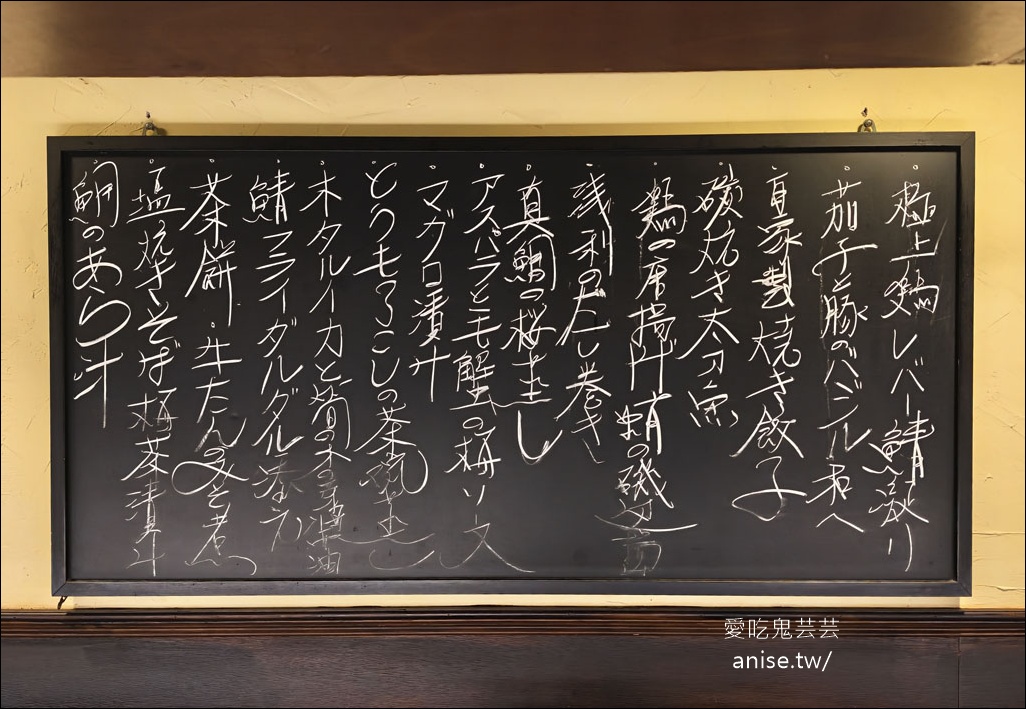 極上鶏レバー 鯖燻り
茄子と豚のバジル和へ
自家製焼き餃子
炭焼き太刀魚
鶏の唐揚げ 蛸の磯
浅利のだし巻き
真鯛の桜蒸し
アスパラとモ蟹の梅ソース
マグロ漬丼
とうもろこしの茶碗蒸し
ホタルイカと筍の木の芽醤油
鯖フライダルダル添え
茶餅・牛たんの旨煮
塩焼きそば 梅茶漬
鯛のあら汁
愛吃鬼芸芸
anise.tw/